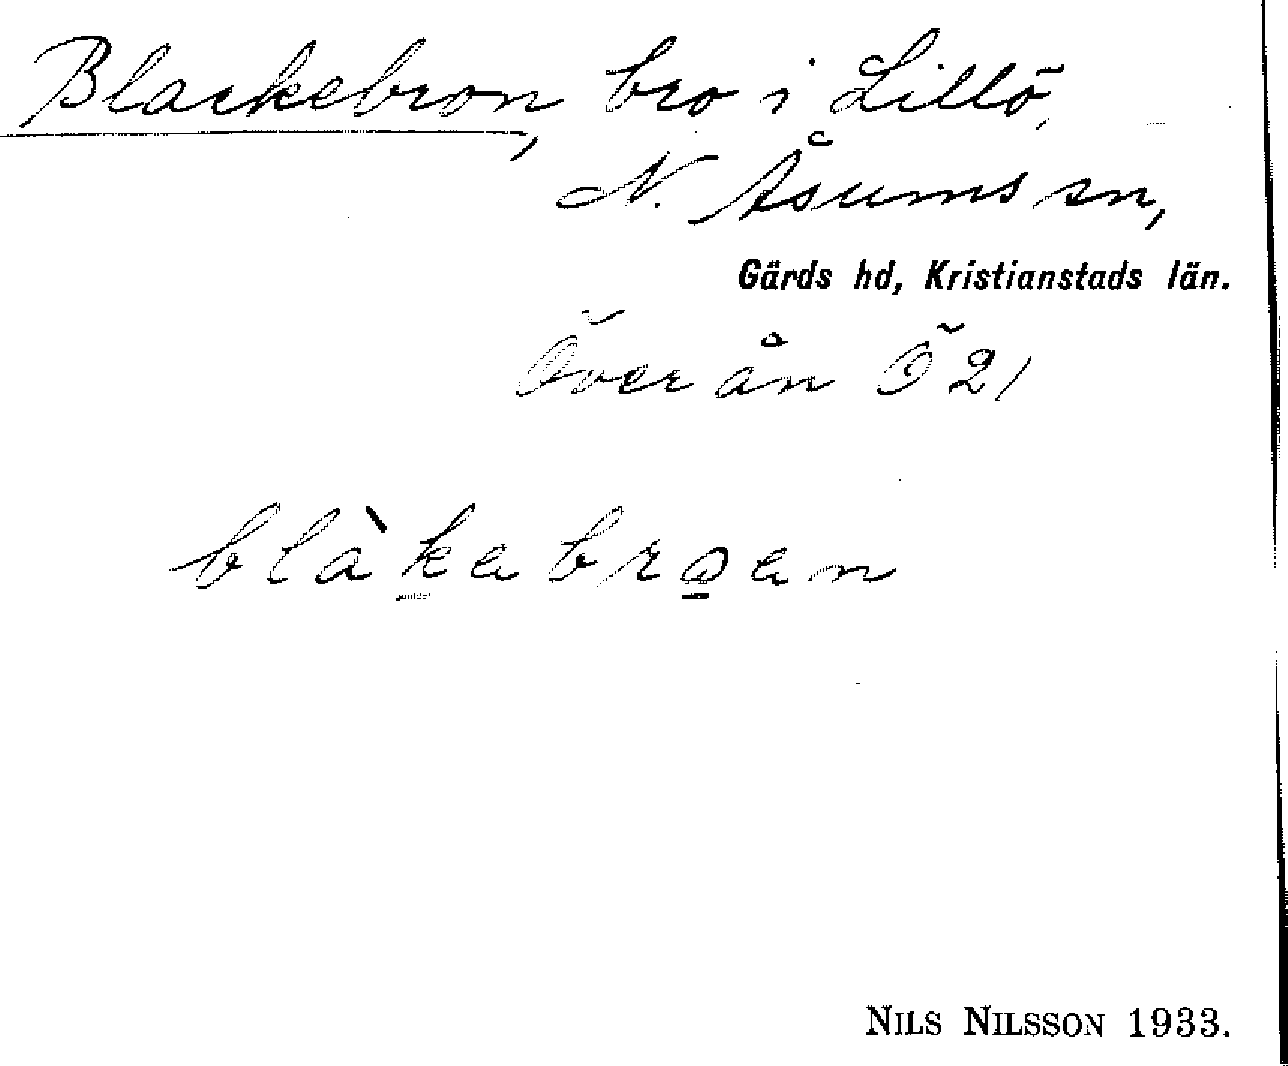 Blackebron, bro i Lillö,
N. Åsums sn,
Gärds hd, Kristianstads län.
Över ån Ö 21
blàkabroan
NILS NILSSON 1933.